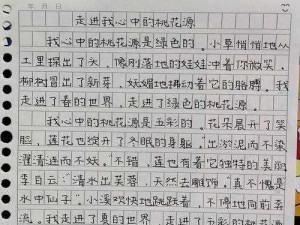 年 月 日
走进我心中的桃花源
我心中的桃花源是绿色的。小草悄悄地从
土里探出了头,像刚落地的娃娃冲着你微笑,
柳树冒出了新芽,妩媚地拂动着它的胳膊。我
走进了春的世界,走进了绿色的桃花源。
我心中的桃花源是五彩的。花朵展开了笑
脸,莲花也绽开了冬眠的身躯,"出淤泥而不染
濯清涟而不妖"。不错,莲也有着它独特的美丽
李白云:"清水出芙蓉,天然去雕饰"真不愧是
水中仙子。小溪欢快地跳跃着,不停地向前奔
流。我走进了夏的世界,走进了五彩的桃花源